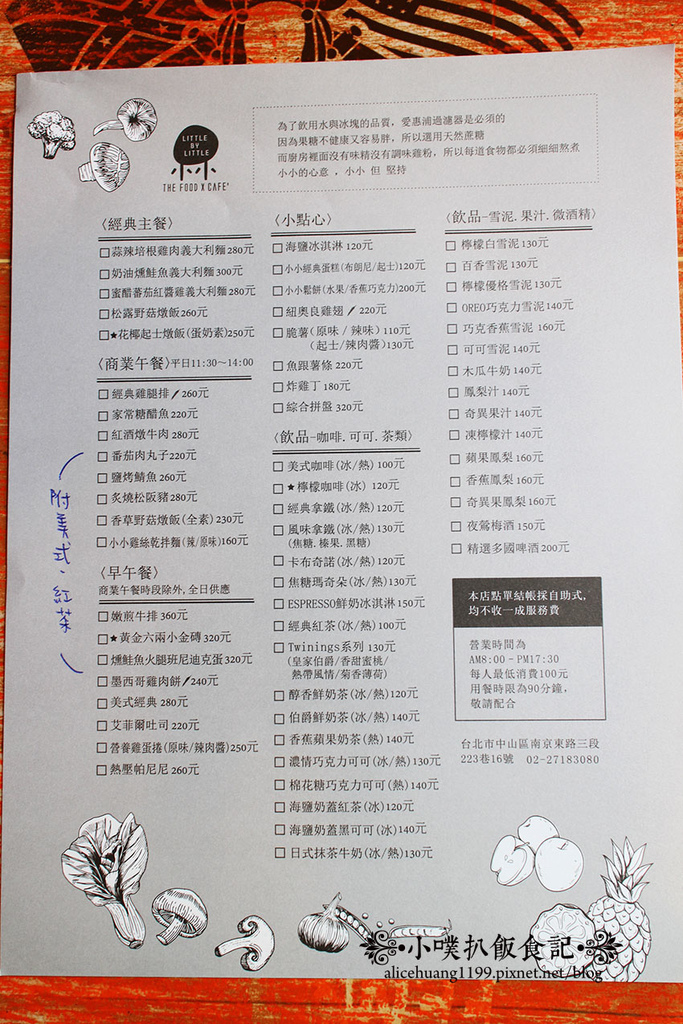 LITTLE
BY
LITTLE
THE FOOD X CAFE'
為了飲用水與冰塊的品質，愛惠浦過濾器是必須的
因為果糖不健康又容易胖，所以選用天然蔗糖
而廚房裡面沒有味精沒有調味雞粉，所以每道食物都必須細細熬煮
小小的心意，小小 但 堅持
〈經典主餐〉
蒜辣培根雞肉義大利麵280元
奶油燻鮭魚義大利麵300元
蜜醋蕃茄紅醬雞義大利麵280元
松露野菇燉飯260元
★花椰起士燉飯(蛋奶素)250元
〈商業午餐〉平日11:30～14:00
經典雞腿排 260元
家常糖醋魚220元
紅酒燉牛肉 280元
番茄肉丸子220元
鹽烤鯖魚260元
炙燒松阪豬280元
香草野菇燉飯(全素) 230元
小小雞絲乾拌麵(辣/原味)160元
附美式、紅茶
〈早午餐〉
商業午餐時段除外, 全日供應
嫩煎牛排 360元
★黃金六兩小金磚320元
燻鮭魚火腿班尼迪克蛋320元
墨西哥雞肉餅 240元
美式經典 280元
艾菲爾吐司 220元
營養雞蛋捲(原味/辣肉醬)250元
熱壓帕尼尼 260元
〈小點心〉
海鹽冰淇淋 120元
小小經典蛋糕(布朗尼/起士)120元
小小鬆餅(水果/香蕉巧克力)200元
紐奧良雞翅 220元
脆薯(原味/辣味)110元
(起士/辣肉醬)130元
魚跟薯條 220元
炸雞丁 180元
綜合拼盤 320元
〈飲品-咖啡.可可.茶類〉
美式咖啡(冰/熱)100元
★檸檬咖啡(冰) 120元
經典拿鐵(冰/熱)120元
風味拿鐵(冰/熱)130元
(焦糖.榛果.黑糖)
卡布奇諾(冰/熱)120元
焦糖瑪奇朵(冰/熱)130元
ESPRESSO鮮奶冰淇淋150元
經典紅茶(冰/熱)100元
Twinings系列 130元
(皇家伯爵/香甜蜜桃/
熱帶風情/菊香薄荷)
醇香鮮奶茶(冰/熱)120元
伯爵鮮奶茶(冰/熱)140元
香蕉蘋果奶茶(熱)140元
濃情巧克力可可(冰/熱)130元
棉花糖巧克力可可(熱)140元
海鹽奶蓋紅茶(冰)120元
海鹽奶蓋黑可可(冰)140元
日式抹茶牛奶(冰/熱)130元
〈飲品-雪泥.果汁.微酒精〉
檸檬白雪泥130元
百香雪泥130元
檸檬優格雪泥130元
OREO巧克力雪泥140元
巧克香蕉雪泥 160元
可可雪泥140元
木瓜牛奶140元
鳳梨汁140元
奇異果汁140元
凍檸檬汁140元
蘋果鳳梨160元
香蕉鳳梨160元
奇異果鳳梨160元
夜鶯梅酒150元
精選多國啤酒200元
本店點單結帳採自助式,
均不收一成服務費
營業時間為
AM8:00－PM17:30
每人最低消費100元
用餐時限為90分鐘,
敬請配合
台北市中山區南京東路三段
223巷16號 02-27183080
小噗扒飯食記
alicehuang1199.pixnet.net/blog